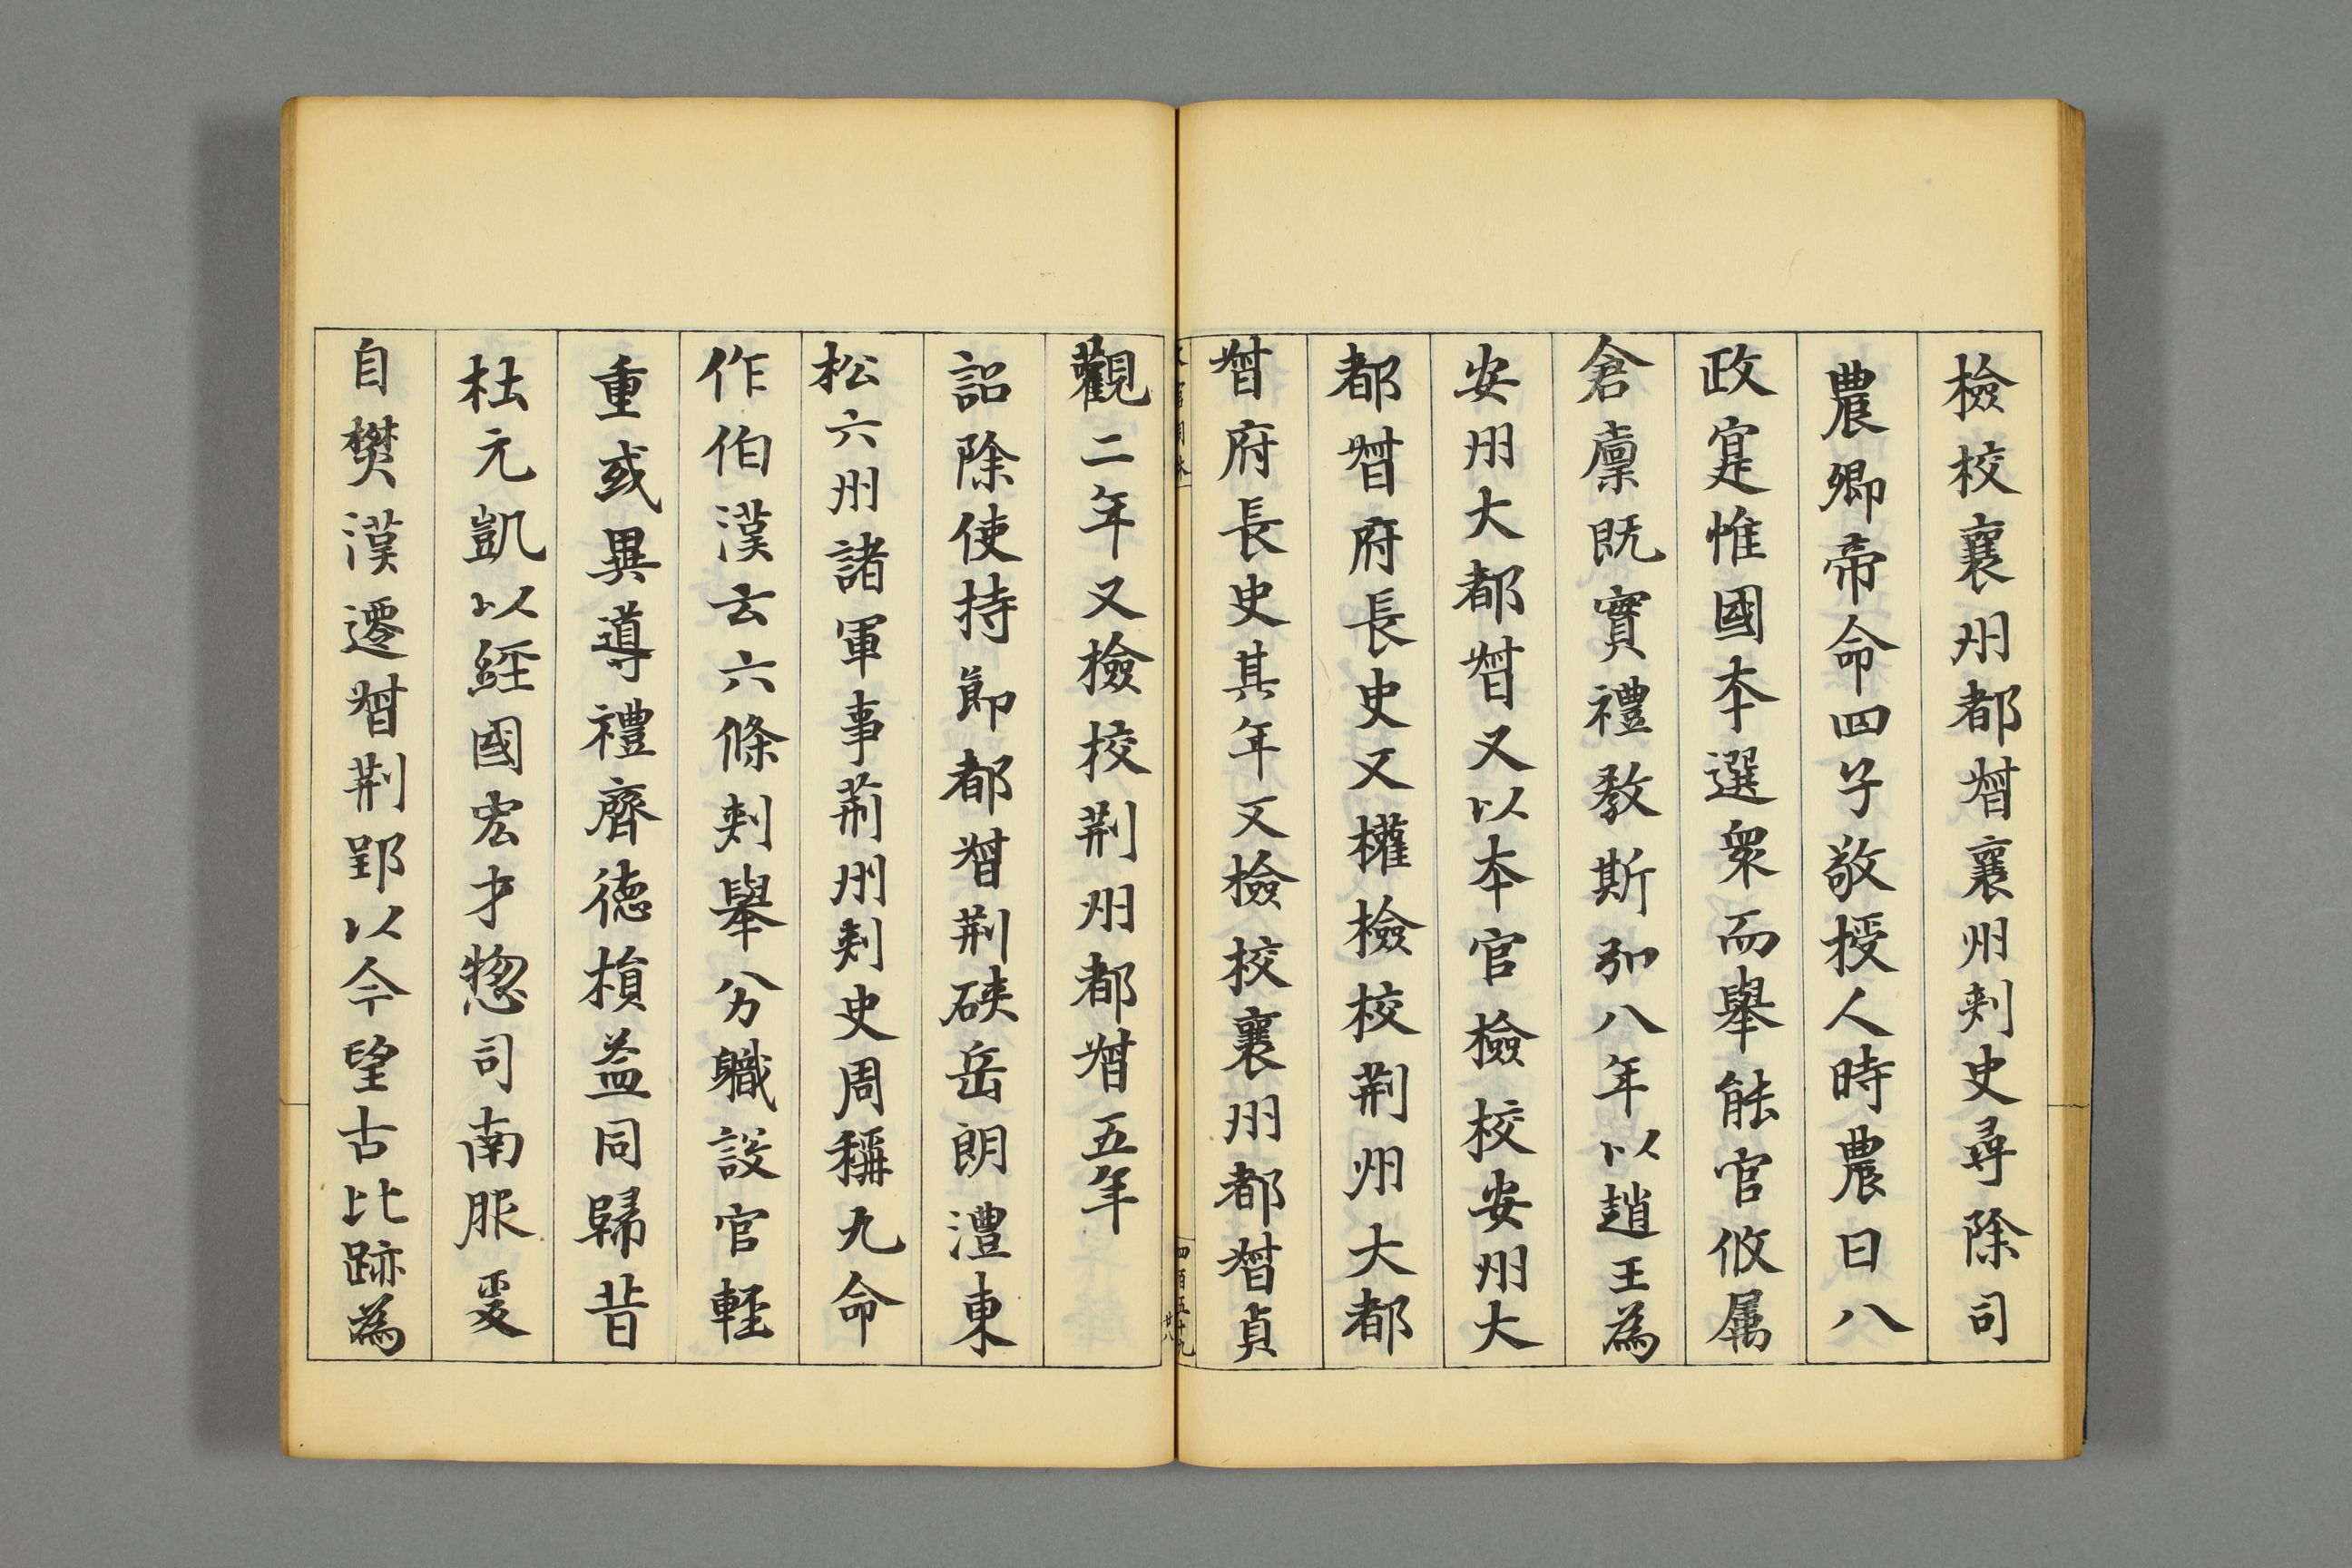 檢校襄州都督襄州刾史尋除司
農卿帝命四子敬授人時農曰八
政寔惟國夲選衆而舉能官攸属
倉廪既實禮教斯弘八年以趙王為
安州大都督又以夲官檢校安州大
都督府長史又權檢校荆州大都
督府長史其年又檢校襄州都督貞
觀二年又檢校荆州都督五年
詔除使持節都督荆硤岳朗澧東
松六州諸軍事荆州刾史周稱九命
作伯漢云六條刾舉分職設官軽
重或異導禮齊德損益同歸昔
杜元凱以經國宏才惣司南服爰
自樊漢遷督荆郢以今望古比跡為
四百五十九
廿八